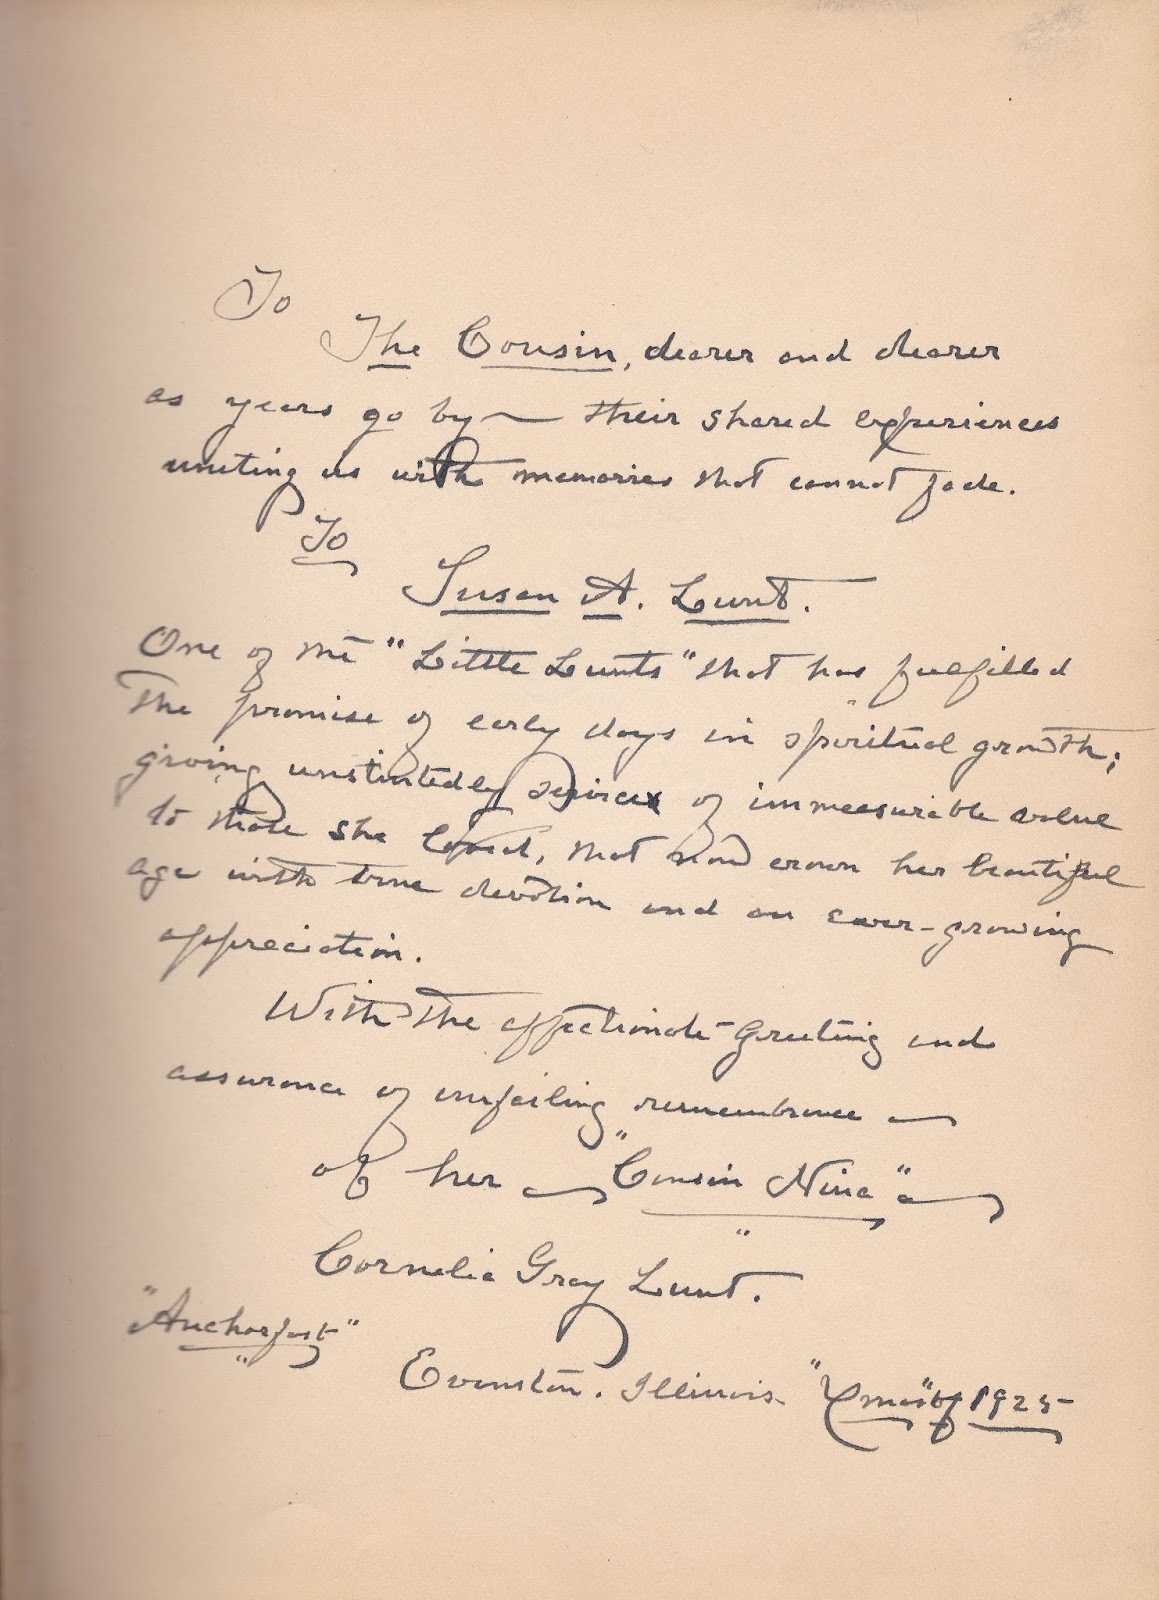 To
The Cousin, dearer and dearer
as years go by — their shared experiences
uniting us with memories that cannot fade.
To
Susan A. Lunt.
One of the "Little Lunts" that has fulfilled
the promise of early days in spiritual growth;
giving unstintedly services of immeasurable value
to those she loved, that now crown her beautiful
age with true devotion and an ever-growing
appreciation.
With the affectionate greeting and
assurance of unfailing remembrance —
of her — "Cousin Nina" —
Cornelia Gray Lunt.
"Anchorfast"
Evanston. Illinois. "Xmas" of 1925-